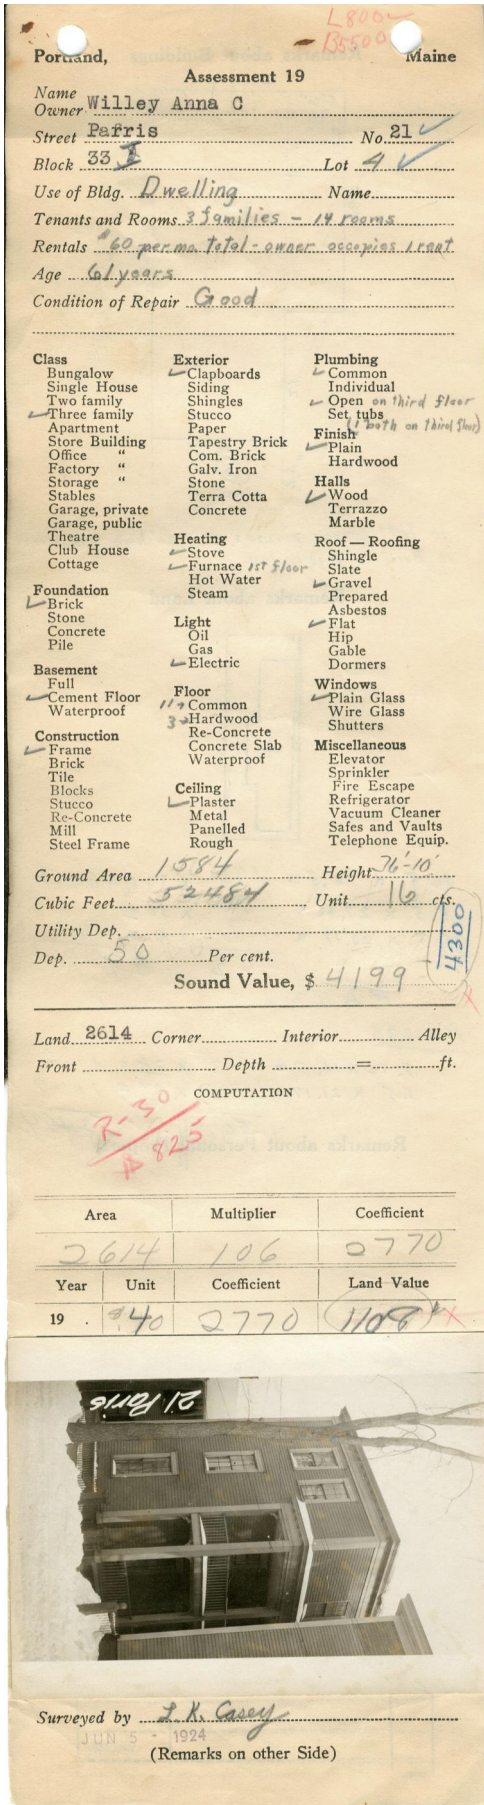 L800-
B5500
Portland, Maine
Assessment 19
Name
Owner Willey Anna C
Street Parris No. 21
Block 33 I Lot 4
Use of Bldg. Dwelling Name
Tenants and Rooms 3 families - 14 rooms
Rentals $60 per mo. total - owner occupies 1 rent
Age 61 years
Condition of Repair Good
Class
Bungalow
Single House
Two family
Three family
Apartment
Store Building
Office "
Factory "
Storage "
Stables
Garage, private
Garage, public
Theatre
Club House
Cottage
Foundation
Brick
Stone
Concrete
Pile
Basement
Full
Cement Floor
Waterproof
Construction
Frame
Brick
Tile
Blocks
Stucco
Re-Concrete
Mill
Steel Frame
Exterior
Clapboards
Siding
Shingles
Stucco
Paper
Tapestry Brick
Com. Brick
Galv. Iron
Stone
Terra Cotta
Concrete
Heating
Stove
Furnace 1st floor
Hot Water
Steam
Light
Oil
Gas
Electric
Floor
11 Common
3 Hardwood
Re-Concrete
Concrete Slab
Waterproof
Ceiling
Plaster
Metal
Panelled
Rough
Plumbing
Common
Individual
Open on third floor
Set tubs
(1 bath on third floor)
Finish
Plain
Hardwood
Halls
Wood
Terrazzo
Marble
Roof — Roofing
Shingle
Slate
Gravel
Prepared
Asbestos
Flat
Hip
Gable
Dormers
Windows
Plain Glass
Wire Glass
Shutters
Miscellaneous
Elevator
Sprinkler
Fire Escape
Refrigerator
Vacuum Cleaner
Safes and Vaults
Telephone Equip.
Ground Area 1584 Height
Cubic Feet 52484 Unit 16 cts.
Utility Dep.
4300
Dep. 50 Per cent.
Sound Value, $ 4199
Land 2614 Corner Interior Alley
Front Depth = ft.
COMPUTATION
R-30
$825
Area Multiplier Coefficient
2614 106 2770
Year Unit Coefficient Land Value
19 . $.40 2770 1108
21 Parris
Surveyed by L. K. Casey
JUN 5 - 1924
(Remarks on other Side)